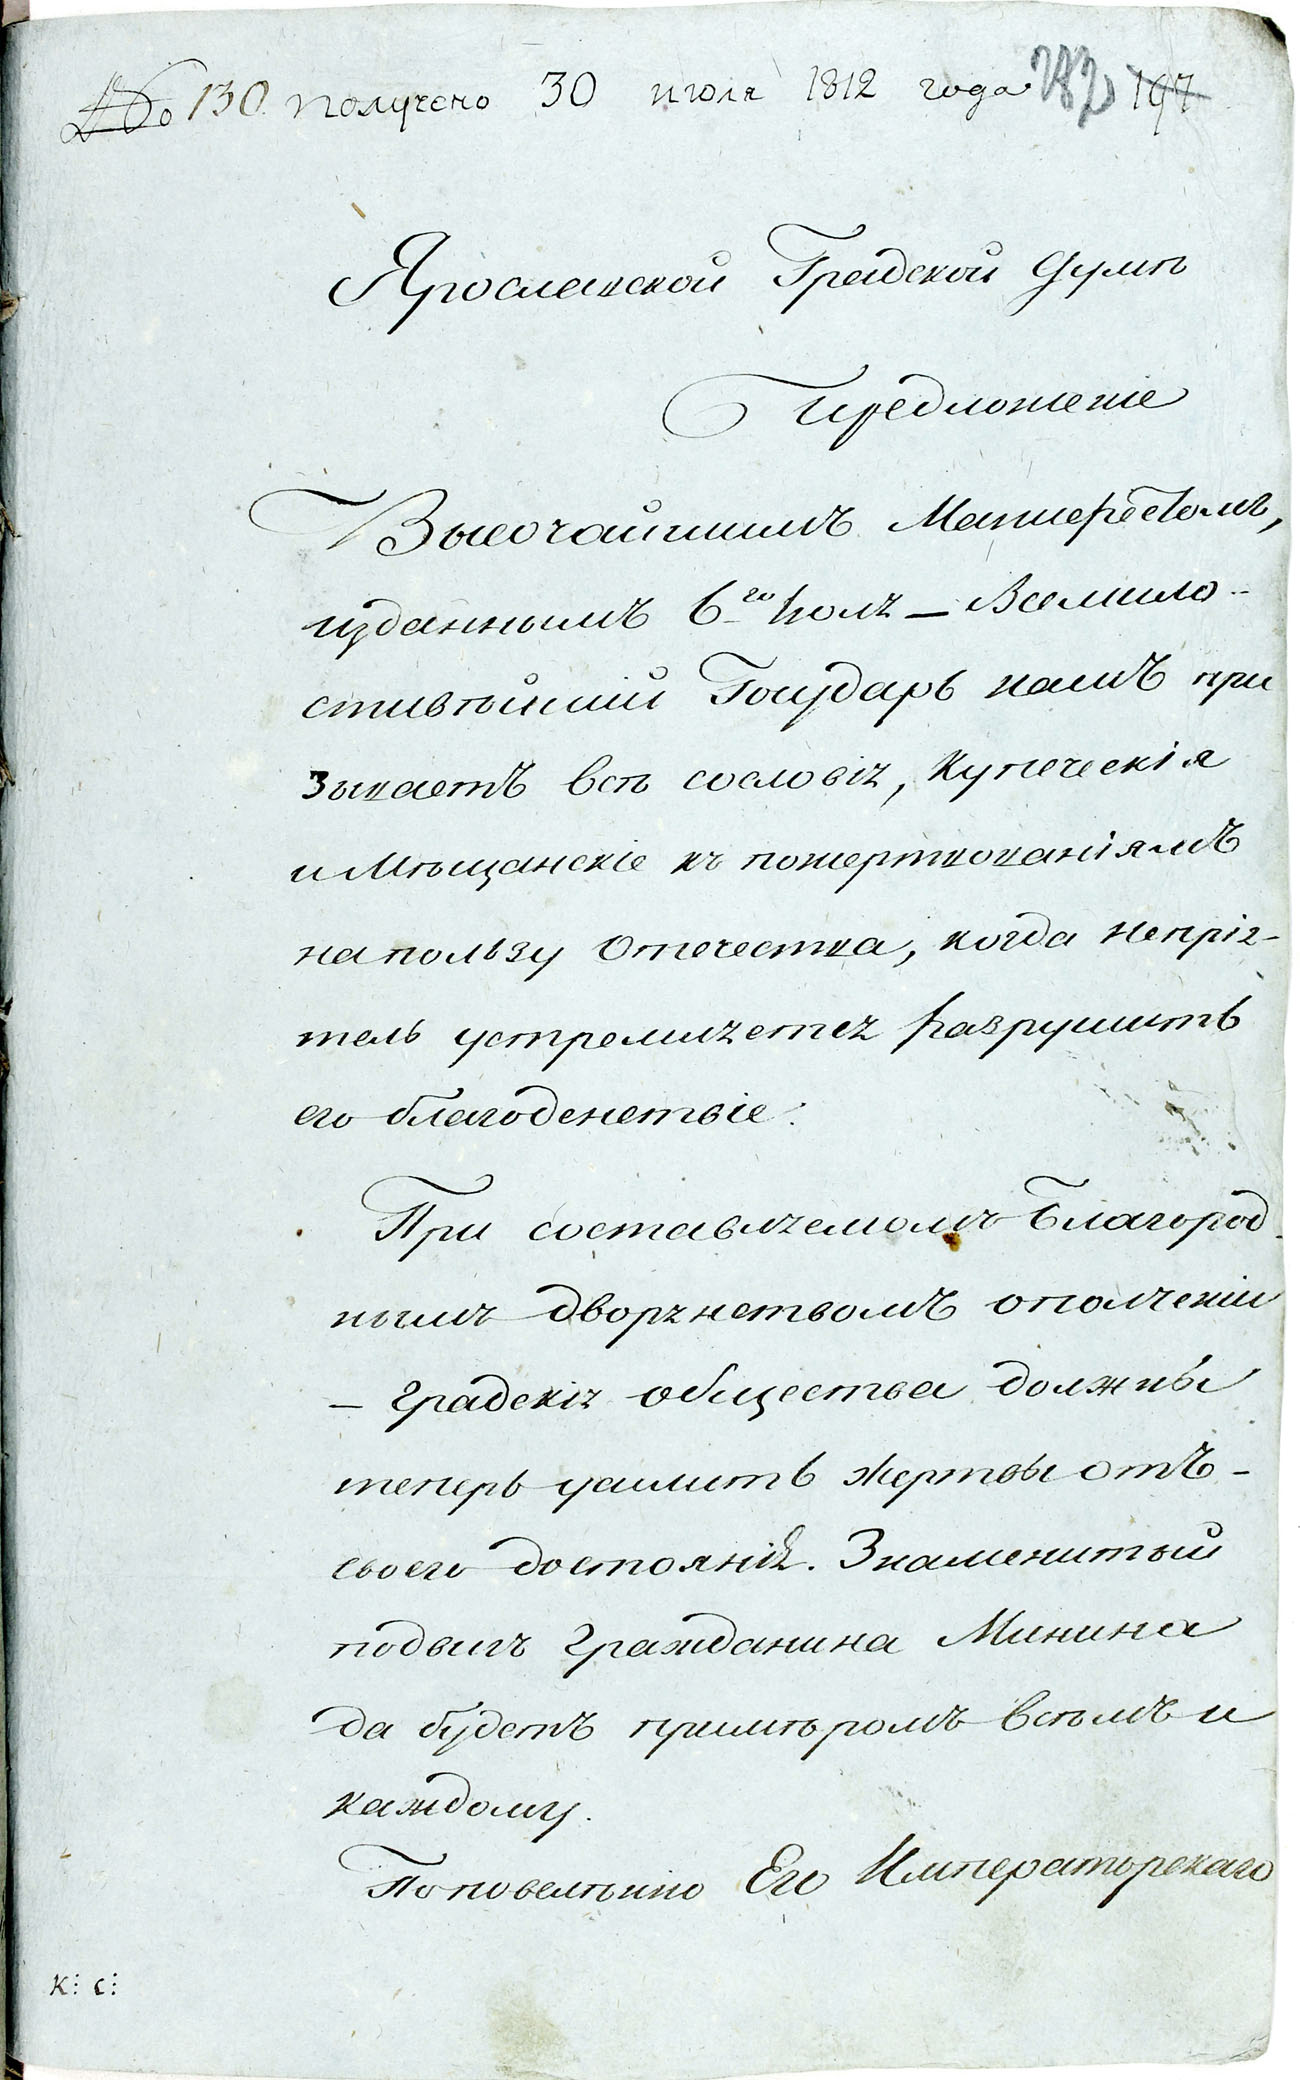 № 130 получено 30 июля 1812 года 282 197
Ярославской Градской Думѣ
Предложеніе
Высочайшимъ Манифестомъ,
изданнымъ 6го Іюля — Всемило-
стивѣйшій Государь нашъ при
зываетъ всѣ сословія, Купеческія
и Мѣщанскіе къ пожертвованіямъ
на пользу Отечества, когда непрія-
тель устремляется разрушить
его благоденствіе.
При составляемомъ Благород
нымъ дворянствомъ ополченіи
— градскія общества должны
теперь усилить жертвы отъ -
своего достоянія. Знаменитый
подвигъ Гражданина Минина
да будетъ примѣромъ всѣмъ и
каждому.
По повелѣнію Его Императорскаго
К: С: